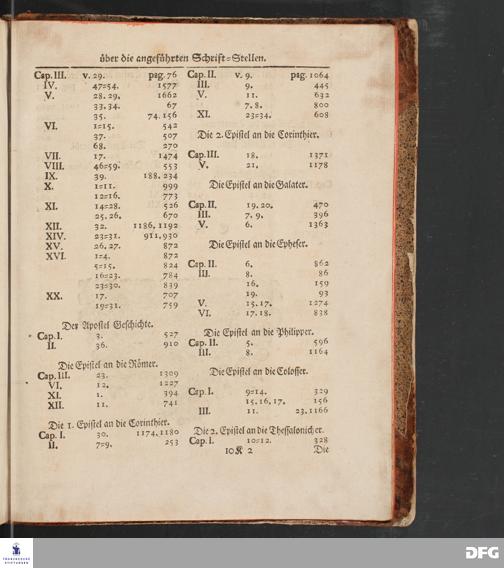 über die angeführten Schrift=Stellen.
Cap. III. v. 29. pag. 76
IV. 47=54. 1577
V. 28. 29. 1662
33. 34. 67
35. 74. 156
VI. 1=15. 542
37. 507
68. 270
VII. 17. 1474
VIII. 46=59. 553
IX. 39. 188. 234
X. 1=11. 999
12=16. 773
XI. 14=28. 526
25. 26. 670
XII. 32. 1186. 1192
XIV. 23=31. 911. 930
XV. 26. 27. 872
XVI. 1=4. 872
5=15. 824
16=23. 784
23=30. 839
XX. 17. 707
19=31. 759
Der Apostel Geschichte.
Cap. I. 3. 527
II. 36. 910
Die Epistel an die Römer.
Cap. III. 23. 1309
VI. 12. 1227
XI. 1. 394
XII. 11. 741
Die 1. Epistel an die Corinthier.
Cap. I. 30. 1174. 1180
II. 7=9. 253
Cap. II. v. 9. pag. 1064
III. 9. 445
V. 11. 632
7. 8. 800
XI. 23=34. 608
Die 2. Epistel an die Corinthier.
Cap. III. 18. 1371
V. 21. 1178
Die Epistel an die Galater.
Cap. II. 19. 20. 470
III. 7. 9. 396
V. 6. 1363
Die Epistel an die Epheser.
Cap. II. 6. 862
III. 8. 86
16. 159
19. 93
V. 15. 17. 1274
VI. 17. 18. 838
Die Epistel an die Philipper.
Cap. II. 5. 596
III. 8. 1164
Die Epistel an die Colosser.
Cap. I. 9=14. 329
15. 16. 17. 156
III. 11. 23. 1166
Die 2. Epistel an die Thessalonicher.
Cap. I. 10=12. 328
10K 2 Die
FRANCKESCHE
STIFTUNGEN
DFG